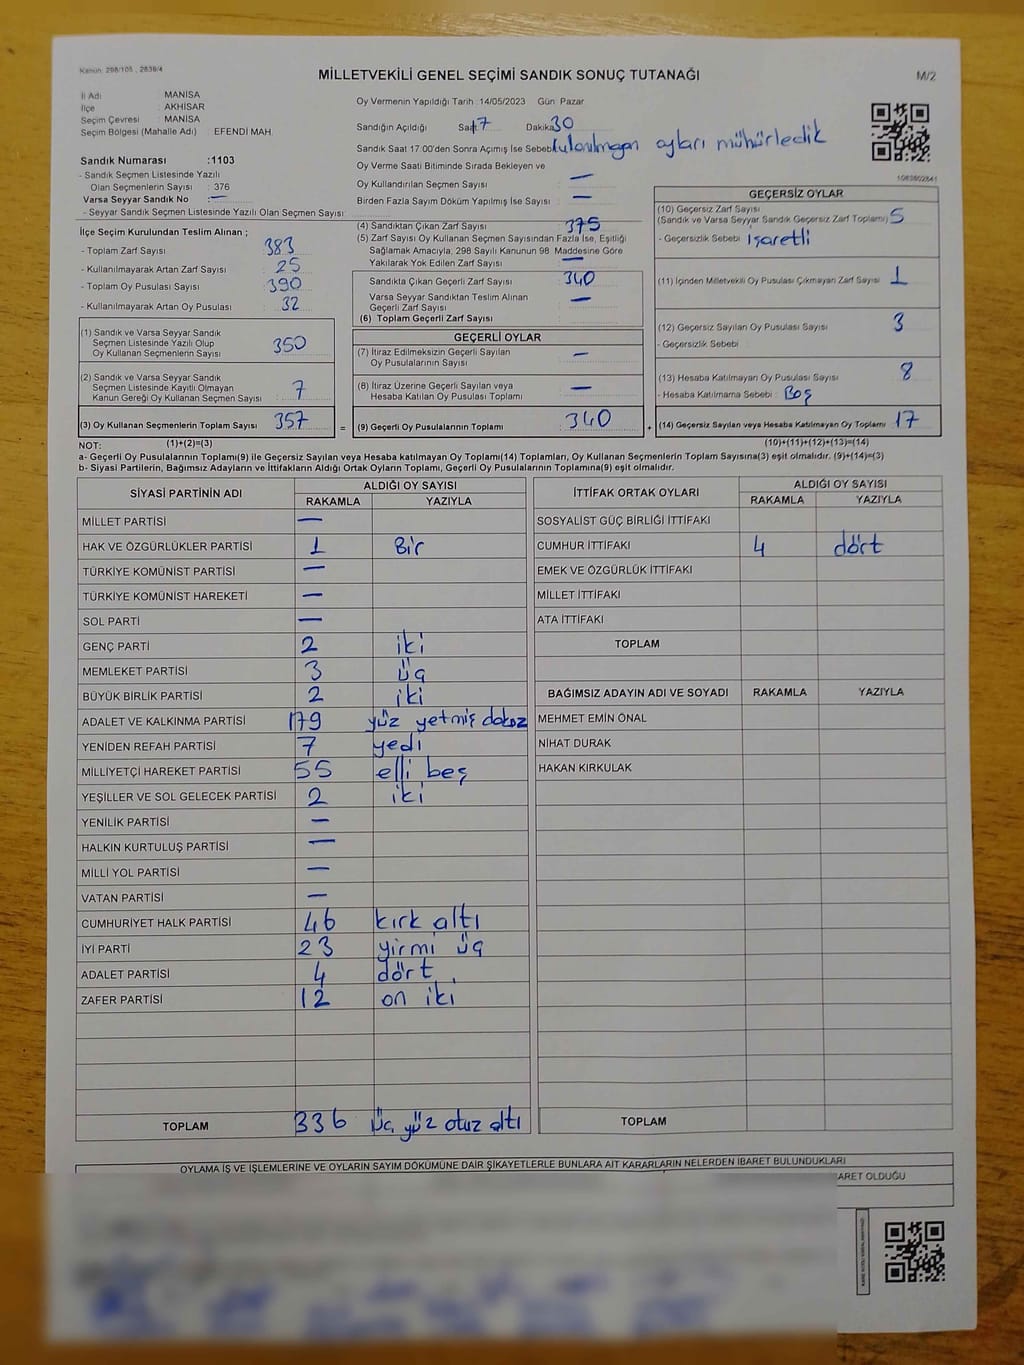 Kanun: 298/105 , 2839/4
MİLLETVEKİLİ GENEL SEÇİMİ SANDIK SONUÇ TUTANAĞI
M/2
İl Adı : MANİSA
İlçe : AKHİSAR
Seçim Çevresi : MANİSA
Seçim Bölgesi (Mahalle Adı) : EFENDİ MAH.
Sandık Numarası :1103
- Sandık Seçmen Listesinde Yazılı
Olan Seçmenlerin Sayısı : 376
Varsa Seyyar Sandık No : —
- Seyyar Sandık Seçmen Listesinde Yazılı Olan Seçmen Sayısı:
İlçe Seçim Kurulundan Teslim Alınan ;
- Toplam Zarf Sayısı 383
- Kullanılmayarak Artan Zarf Sayısı 25
- Toplam Oy Pusulası Sayısı 390
- Kullanılmayarak Artan Oy Pusulası 32
(1) Sandık ve Varsa Seyyar Sandık
Seçmen Listesinde Yazılı Olup
Oy Kullanan Seçmenlerin Sayısı 350
(2) Sandık ve Varsa Seyyar Sandık
Seçmen Listesinde Kayıtlı Olmayan
Kanun Gereği Oy Kullanan Seçmen Sayısı 7
(3) Oy Kullanan Seçmenlerin Toplam Sayısı 357 =
Oy Vermenin Yapıldığı Tarih :14/05/2023 Gün: Pazar
Sandığın Açıldığı Saat 17 Dakika 30
Sandık Saat 17.00'den Sonra Açılmış İse Sebebi kullanılmayan oyları mühürledik
Oy Verme Saati Bitiminde Sırada Bekleyen ve
Oy Kullandırılan Seçmen Sayısı —
Birden Fazla Sayım Döküm Yapılmış İse Sayısı —
(4) Sandıktan Çıkan Zarf Sayısı 375
(5) Zarf Sayısı Oy Kullanan Seçmen Sayısından Fazla İse, Eşitliği
Sağlamak Amacıyla, 298 Sayılı Kanunun 98. Maddesine Göre
Yakılarak Yok Edilen Zarf Sayısı —
Sandıkta Çıkan Geçerli Zarf Sayısı 340
Varsa Seyyar Sandıktan Teslim Alınan
Geçerli Zarf Sayısı —
(6) Toplam Geçerli Zarf Sayısı
GEÇERLİ OYLAR
(7) İtiraz Edilmeksizin Geçerli Sayılan
Oy Pusulalarının Sayısı —
(8) İtiraz Üzerine Geçerli Sayılan veya
Hesaba Katılan Oy Pusulası Toplamı —
(9) Geçerli Oy Pusulalarının Toplamı 340 +
1083802841
GEÇERSİZ OYLAR
(10) Geçersiz Zarf Sayısı
(Sandık ve Varsa Seyyar Sandık Geçersiz Zarf Toplamı) 5
- Geçersizlik Sebebi işaretli
(11) İçinden Milletvekili Oy Pusulası Çıkmayan Zarf Sayısı 1
(12) Geçersiz Sayılan Oy Pusulası Sayısı 3
- Geçersizlik Sebebi
(13) Hesaba Katılmayan Oy Pusulası Sayısı 8
- Hesaba Katılmama Sebebi : Boş
(14) Geçersiz Sayılan veya Hesaba Katılmayan Oy Toplamı 17
NOT: (1)+(2)=(3) (10)+(11)+(12)+(13)=(14)
a- Geçerli Oy Pusulalarının Toplamı(9) ile Geçersiz Sayılan veya Hesaba katılmayan Oy Toplamı(14) Toplamları, Oy Kullanan Seçmenlerin Toplam Sayısına(3) eşit olmalıdır. (9)+(14)=(3)
b- Siyasi Partilerin, Bağımsız Adayların ve İttifakların Aldığı Ortak Oyların Toplamı, Geçerli Oy Pusulalarının Toplamına(9) eşit olmalıdır.
SİYASİ PARTİNİN ADI ALDIĞI OY SAYISI
RAKAMLA YAZIYLA
MİLLET PARTİSİ —
HAK VE ÖZGÜRLÜKLER PARTİSİ 1 Bir
TÜRKİYE KOMÜNİST PARTİSİ —
TÜRKİYE KOMÜNİST HAREKETİ —
SOL PARTİ —
GENÇ PARTİ 2 iki
MEMLEKET PARTİSİ 3 üç
BÜYÜK BİRLİK PARTİSİ 2 iki
ADALET VE KALKINMA PARTİSİ 179 yüz yetmiş dokuz
YENİDEN REFAH PARTİSİ 7 yedi
MİLLİYETÇİ HAREKET PARTİSİ 55 elli beş
YEŞİLLER VE SOL GELECEK PARTİSİ 2 iki
YENİLİK PARTİSİ —
HALKIN KURTULUŞ PARTİSİ —
MİLLİ YOL PARTİSİ —
VATAN PARTİSİ —
CUMHURİYET HALK PARTİSİ 46 kırk altı
İYİ PARTİ 23 yirmi üç
ADALET PARTİSİ 4 dört
ZAFER PARTİSİ 12 on iki
TOPLAM 336 üç yüz otuz altı
İTTİFAK ORTAK OYLARI ALDIĞI OY SAYISI
RAKAMLA YAZIYLA
SOSYALİST GÜÇ BİRLİĞİ İTTİFAKI
CUMHUR İTTİFAKI 4 dört
EMEK VE ÖZGÜRLÜK İTTİFAKI
MİLLET İTTİFAKI
ATA İTTİFAKI
TOPLAM
BAĞIMSIZ ADAYIN ADI VE SOYADI RAKAMLA YAZIYLA
MEHMET EMİN ÖNAL
NİHAT DURAK
HAKAN KIRKULAK
TOPLAM
OYLAMA İŞ VE İŞLEMLERİNE VE OYLARIN SAYIM DÖKÜMÜNE DAİR ŞİKAYETLERLE BUNLARA AİT KARARLARIN NELERDEN İBARET BULUNDUKLARI
ARET OLDUĞU